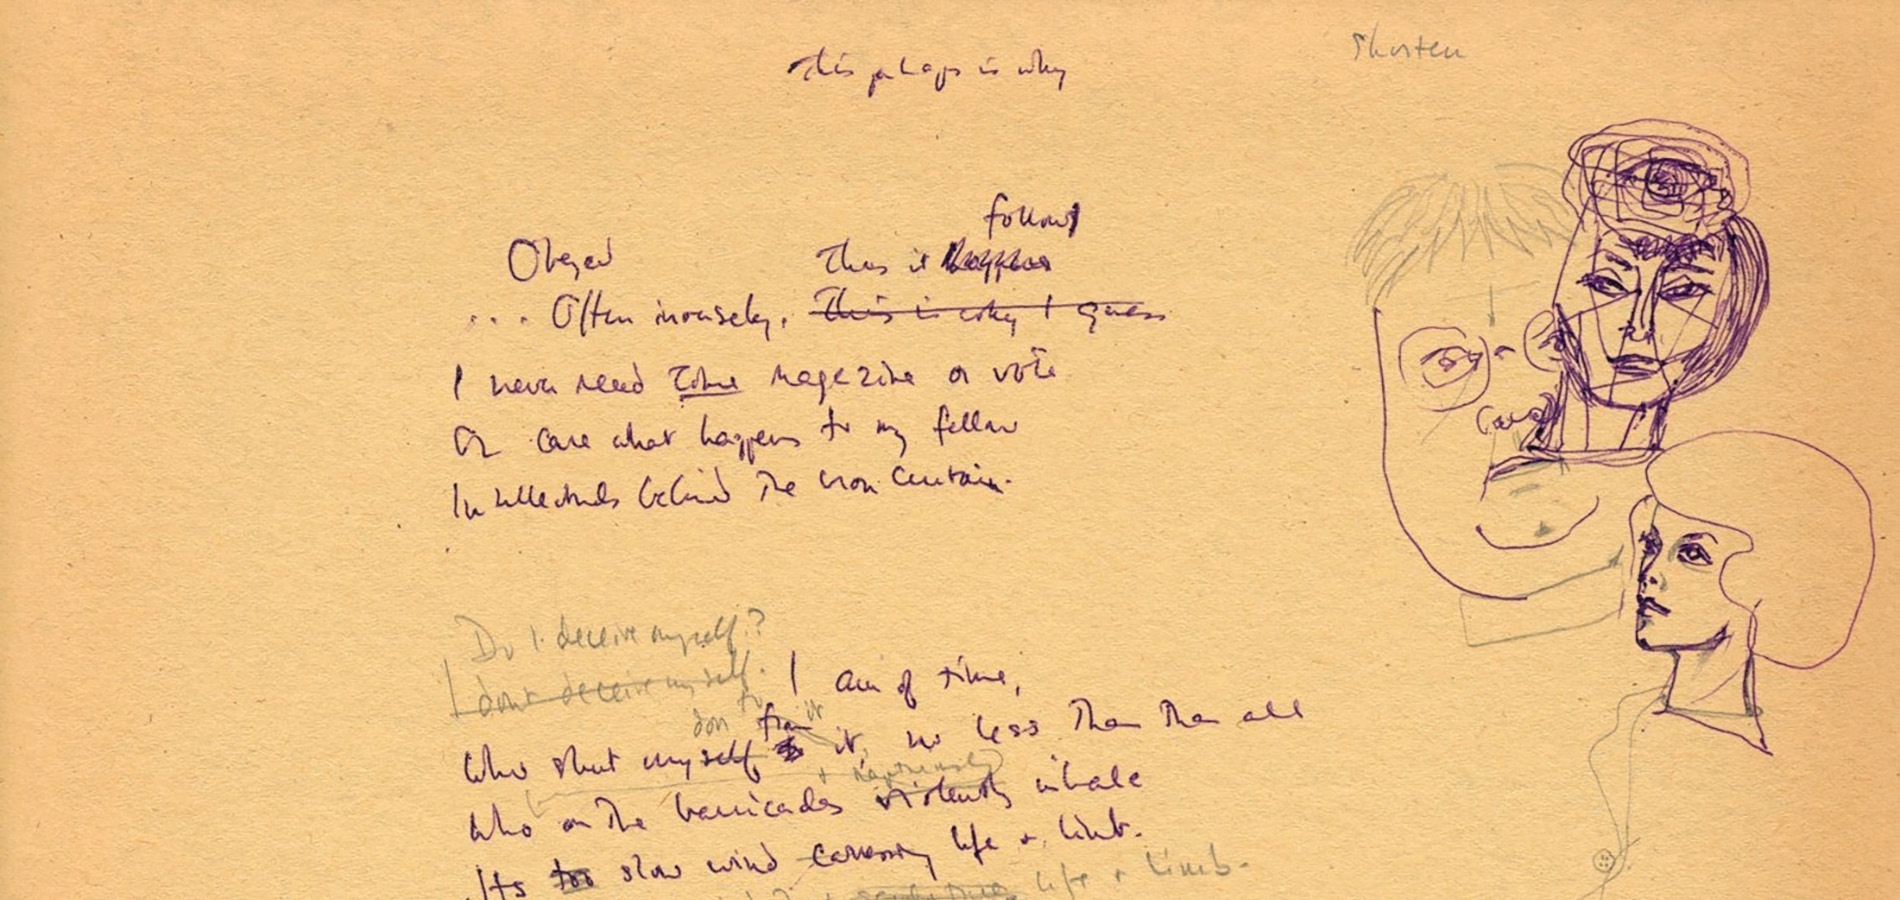 Shorten
This perhaps is why
follows
Obeyed Thus it happens
... Often inversely. This is why I guess
I never read Time magazine or vote
Or care what happens to my fellow
Intellectuals behind the iron curtain.
Do I deceive myself?
I don't deceive myself. I am of time,
don to it
from
Who shut myself to it, no less than than all
+
Who on the barricades violently inhale
Its too slow wind caressing life + limb.
life + limb.